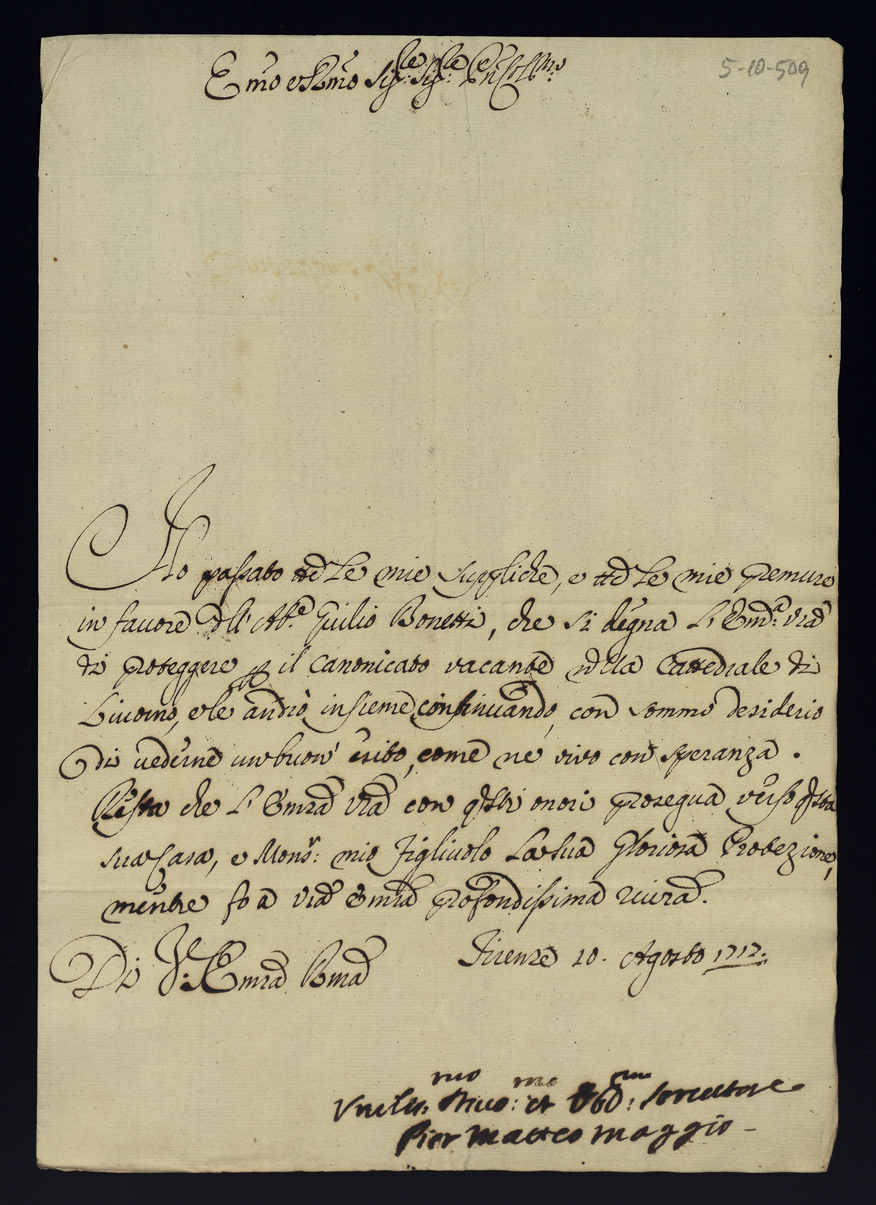 5-10-509
Emo e Rmo Sig.re Sig.re
Ho passato tte le mie suppliche, e tte le mie premure
in favore dell' Ab.e Giulio Bonetti, che si degna l'Em.a Vra
di proteggere il Canonicato vacante nella Cattedrale di
Livorno, e le andrò insieme continuando, con sommo desiderio
di vederne un buon' esito, come ne vivo con speranza.
Resta che l'Emza Vra con qsti onori prosegua verso qsta
sua Casa, e Mons.r mio Figliuolo la sua Gloriosa Protezione,
mentre fo a Vra Emza profondissima rivrza.
Di V.ra Emza Rma
Firenze 10. Agosto 1717.
Umiliss.mo et Obb.mo Servitore
Pier Matteo Maggio